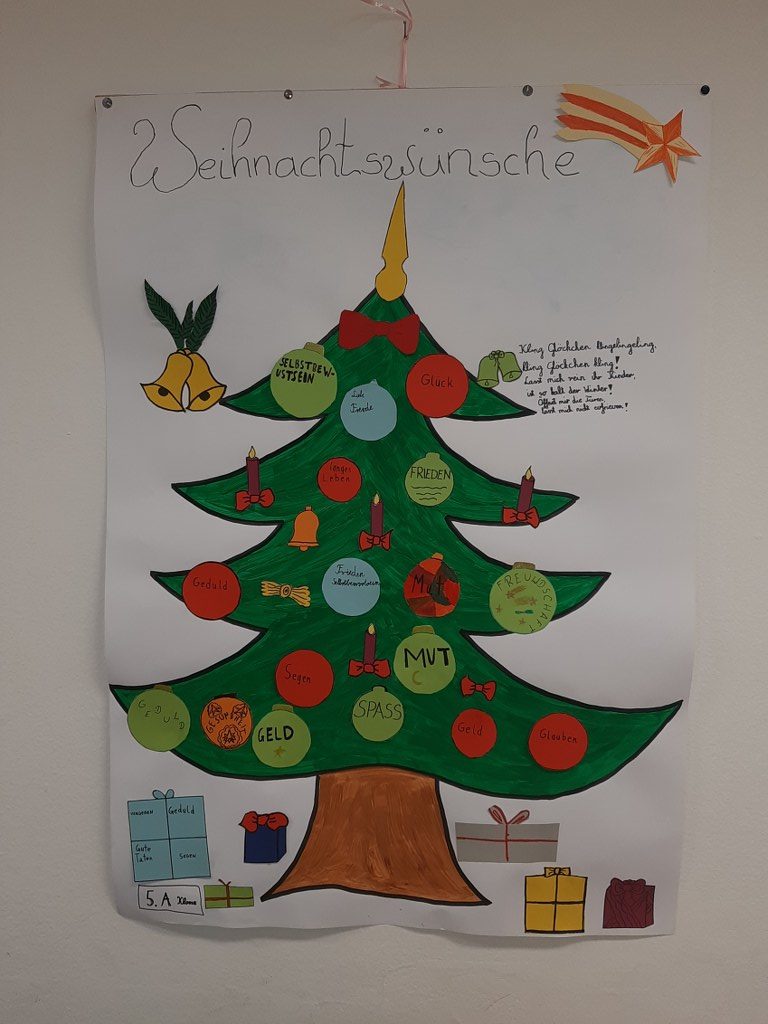 Weihnachtswünsche
Kling Glöckchen klingelingeling,
kling Glöckchen kling!
Lasst mich rein ihr Kinder,
ist so kalt der Winter!
Öffnet mir die Türen,
lasst mich nicht erfrieren!
SELBSTBEW-
USTSEIN
Liebe
Freude
Glück
langes
Leben
FRIEDEN
Geduld
Frieden
Selbstbewusstsein
Mut
FREUNDSCHAFT
Segen
MUT
GEDULD
GESUNDHEIT
GELD
SPASS
Geld
Glauben
Geduld
Gute
Taten
SEGEN
5. A Klasse